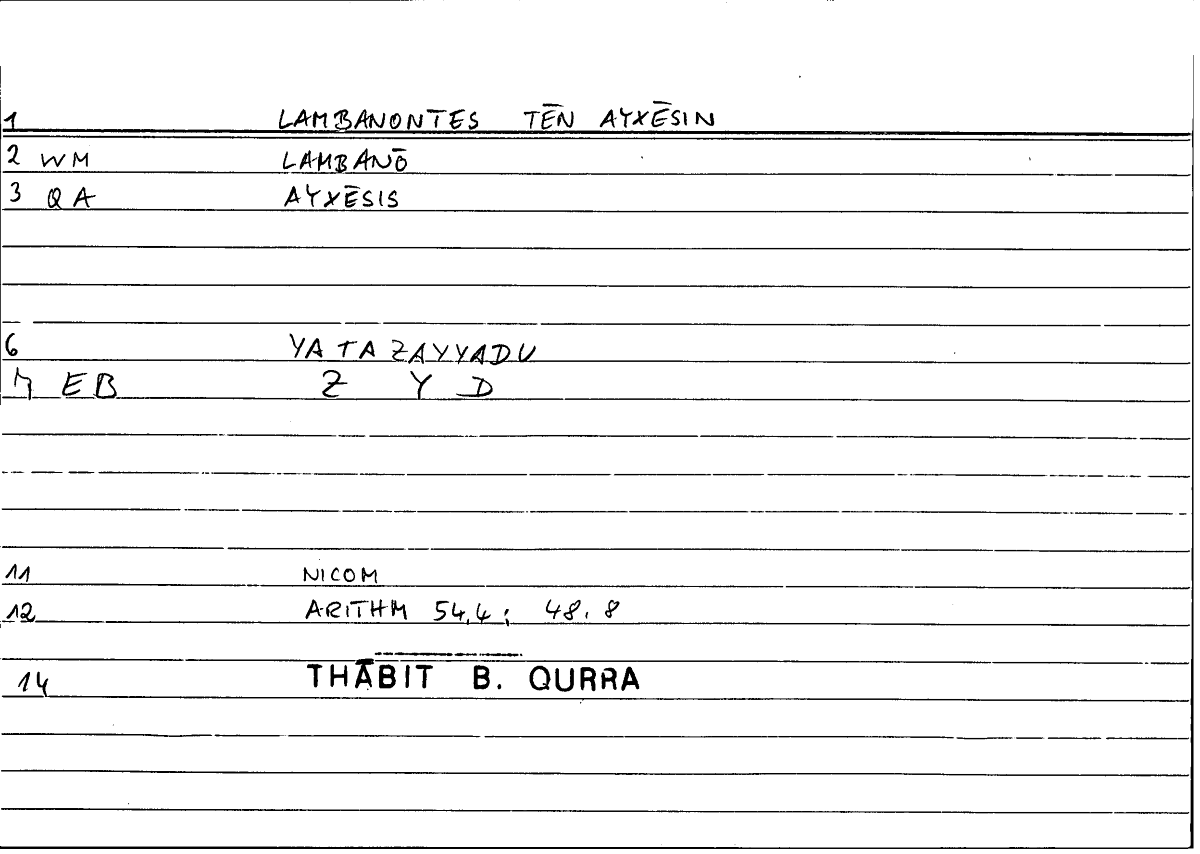 1 LAMBANONTES TĒN AYXĒSIN
2 WM LAMBANŌ
3 QA AYXĒSIS
6 YATAZAYYADU
7 EB Z Y D
11 NICOM
12 ARITHM 54,4; 48.8
14 THĀBIT B. QURRA